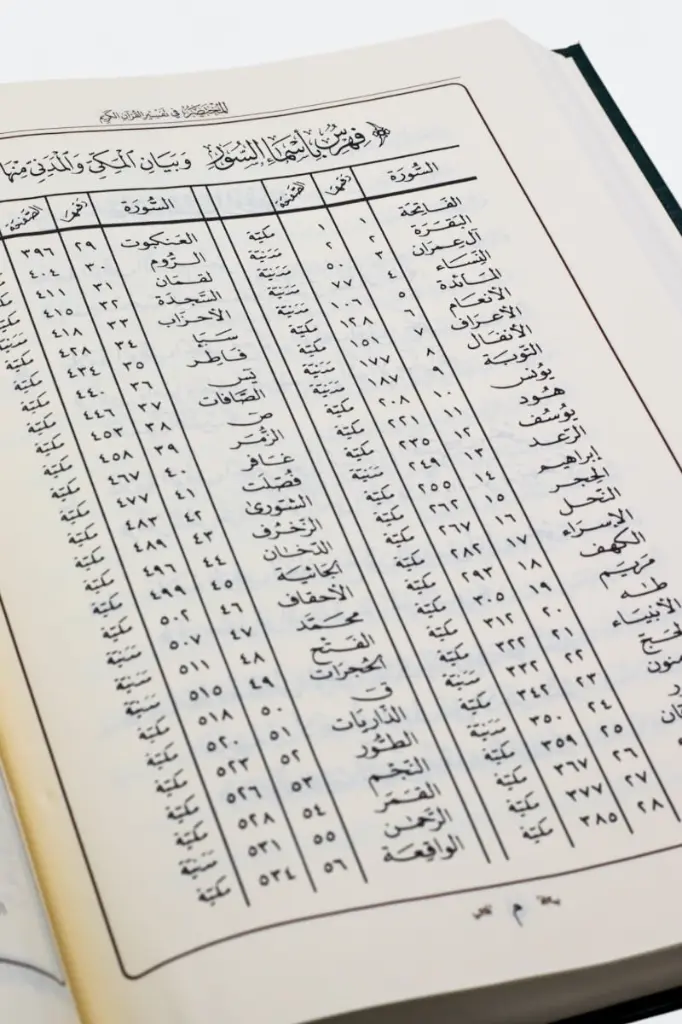 المختصر في تفسير القرآن الكريم
فهرس بأسماء السور وبيان المكي والمدني منها
السورة رقمها الصفحة السورة رقمها الصفحة
الفاتحة ١ ١ مكية العنكبوت ٢٩ ٣٩٦
البقرة ٢ ٢ مدنية الروم ٣٠ ٤٠٤
آل عمران ٣ ٥٠ مدنية لقمان ٣١ ٤١١
النساء ٤ ٧٧ مدنية السجدة ٣٢ ٤١٥
المائدة ٥ ١٠٦ مدنية الأحزاب ٣٣ ٤١٨ مدنية
الأنعام ٦ ١٢٨ مكية سبإ ٣٤ ٤٢٨ مكية
الأعراف ٧ ١٥١ مكية فاطر ٣٥ ٤٣٤ مكية
الأنفال ٨ ١٧٧ مدنية يس ٣٦ ٤٤٠ مكية
التوبة ٩ ١٨٧ مدنية الصافات ٣٧ ٤٤٦ مكية
يونس ١٠ ٢٠٨ مكية ص ٣٨ ٤٥٣ مكية
هود ١١ ٢٢١ مكية الزمر ٣٩ ٤٥٨ مكية
يوسف ١٢ ٢٣٥ مكية غافر ٤٠ ٤٦٧ مكية
الرعد ١٣ ٢٤٩ مدنية فصلت ٤١ ٤٧٧ مكية
إبراهيم ١٤ ٢٥٥ مكية الشورى ٤٢ ٤٨٣ مكية
الحجر ١٥ ٢٦٢ مكية الزخرف ٤٣ ٤٨٩ مكية
النحل ١٦ ٢٦٧ مكية الدخان ٤٤ ٤٩٦ مكية
الإسراء ١٧ ٢٨٢ مكية الجاثية ٤٥ ٤٩٩ مكية
الكهف ١٨ ٢٩٣ مكية الأحقاف ٤٦ ٥٠٢ مكية
مريم ١٩ ٣٠٥ مكية محمد ٤٧ ٥٠٧ مدنية
طه ٢٠ ٣١٢ مكية الفتح ٤٨ ٥١١ مدنية
الأنبياء ٢١ ٣٢٢ مكية الحجرات ٤٩ ٥١٥ مدنية
٢٢ ٣٣٢ مدنية ق ٥٠ ٥١٨ مكية
٢٣ ٣٤٢ مكية الذاريات ٥١ ٥٢٠ مكية
٢٤ ٣٥٠ مدنية الطور ٥٢ ٥٢٣ مكية
٢٥ ٣٥٩ مكية النجم ٥٣ ٥٢٦ مكية
٢٦ ٣٦٧ مكية القمر ٥٤ ٥٢٨ مكية
٢٧ ٣٧٧ مكية الرحمن ٥٥ ٥٣١ مدنية
٢٨ ٣٨٥ مكية الواقعة ٥٦ ٥٣٤ مكية
م